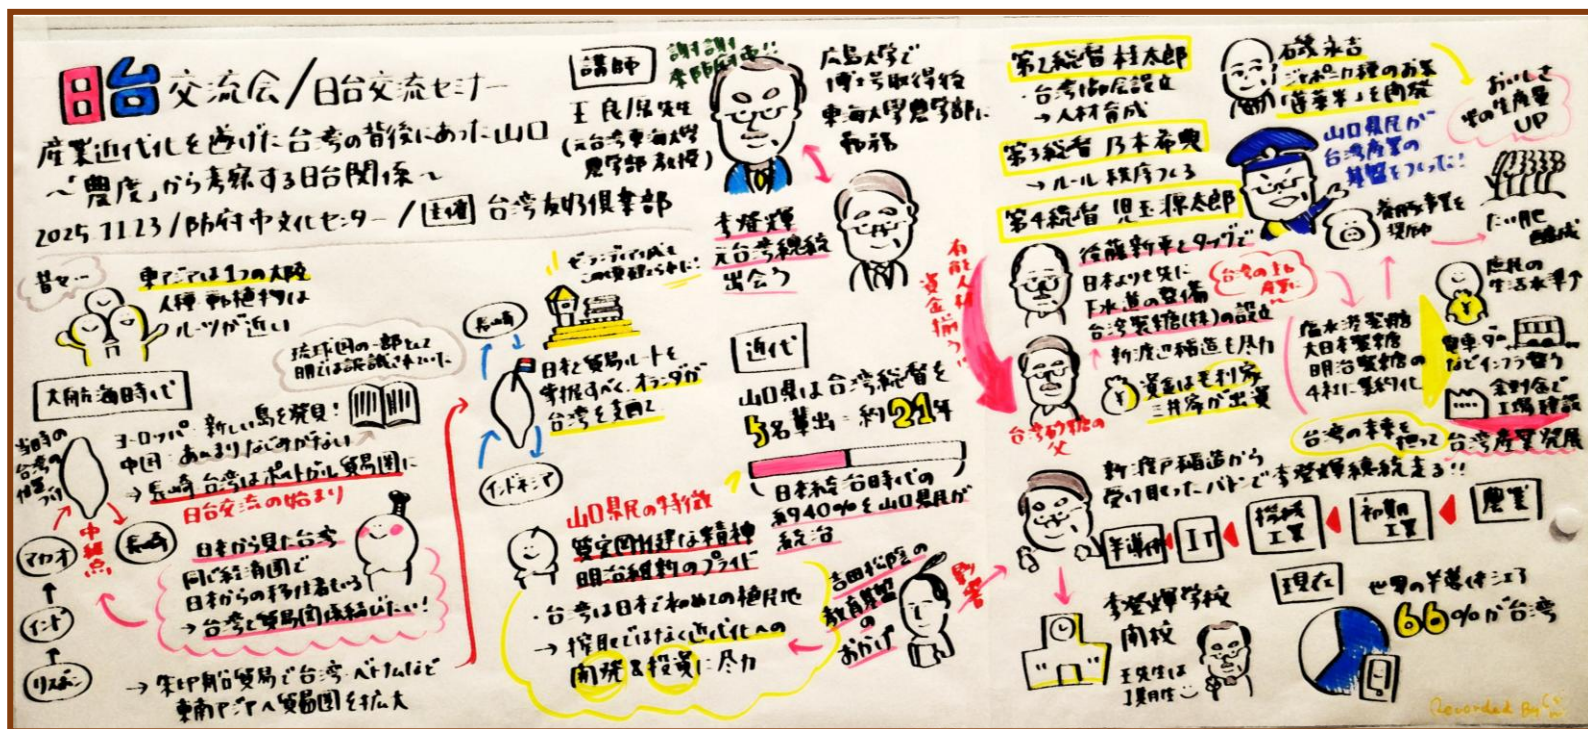 日台交流会/日台交流セミナー
産業近代化を遂げた台湾の背後にあった山口
～「農度」から考察する日台関係～
2025.11.23/防府市文化センター/主催 台湾友好倶楽部
講師
謝謝
来防府市!!
王良原先生
(元台湾東海大学
農学部教授)
広島大学で
博士号取得後
東海大學農学部に
勤務
李登輝
元台湾総統
出会う
昔々…
東アジアは1つの大陸
人種・動植物は
ルーツが近い
琉球国の一部として
明では認識されていた
大航海時代
ヨーロッパ:新しい島を発見!
中国:あんまりなじみがない
→長崎・台湾はポルトガル貿易圏に
日台交流の始まり
当時の
台湾の
位置づけ
中継点
マカオ
長崎
インド
リスボン
日本から見た台湾
同じ経済圏で
日本からの移住者もいる
→台湾と貿易関係結びたい!
→朱印船貿易で台湾・ベトナムなど
東南アジアへ貿易圏を拡大
ゼーランディア城も
この頃建てられた!
長崎
日本と貿易ルートを
掌握すべく、オランダが
台湾を支配
インドネシア
近代
山口県は台湾総督を
5名輩出=約21年
日本統治時代の
約40%を山口県民が
統治
山口県民の特徴
質実剛健な精神
明治維新のプライド
・台湾は日本で初めての植民地
→搾取ではなく近代化への
開発&投資に尽力
吉田松陰の
教育基盤
の
おかげ
影響
第2総督 桂太郎
・台湾協会設立
→人材育成
第3総督 乃木希典
→ルール・秩序つくる
第4総督 児玉源太郎
後藤新平とタッグで
日本よりも先に
下水道の整備
台湾製糖(株)の設立
台湾の主力
産業に
新渡戸稲造も尽力
資金は毛利家
三井家が出資
有能人材
資金揃う
台湾砂糖の
父
磯永吉
ジャポニカ種のお米
「蓬萊米」を開発
おいしさ
米の生産量
UP
山口県民が
台湾産業の
基盤をつくった!
養豚事業を
たい肥
塩水港製糖
大日本製糖
明治製糖の
4社に集約化
庶民の
生活水準↑
電車・ダム
などインフラ整う
工場建設
台湾産業発展
台湾の未来を
担って
新渡戸稲造から
受け取ったバトンで李登輝総統走る!!
半導体
IT
機械
工業
初期
工業
農業
李登輝学校
開校
王先生は
1期生
現在
世界の半導体シェア
66%が台湾
Recorded By